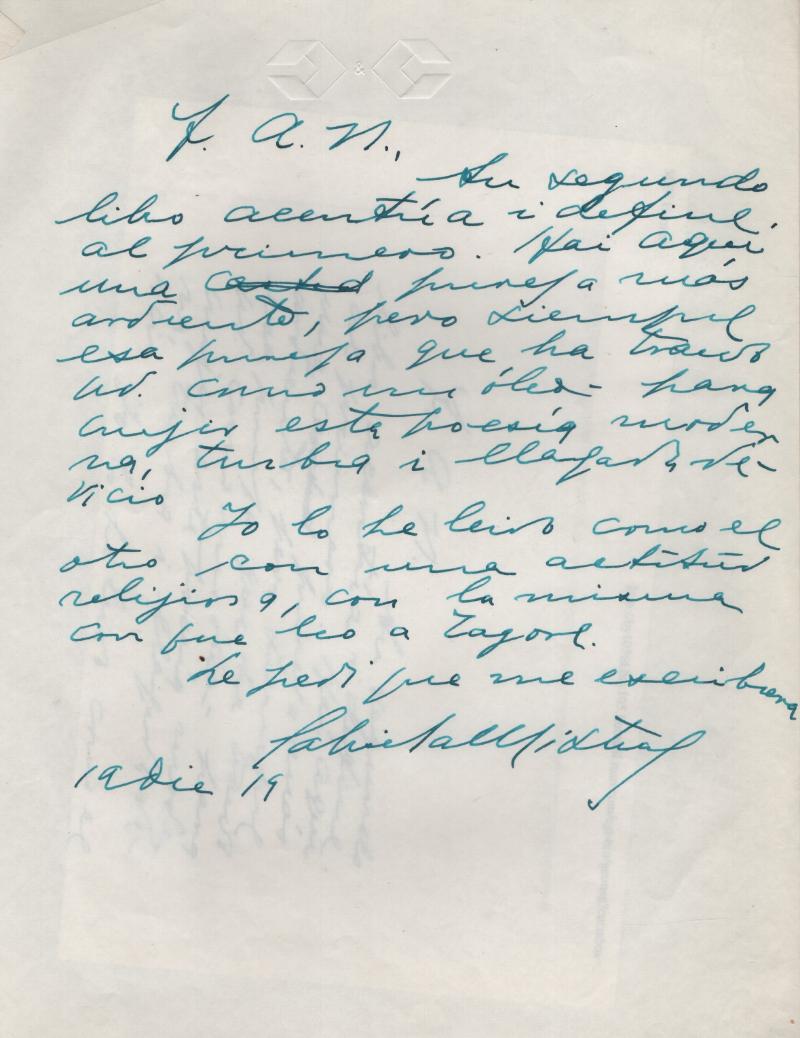 &
F. A. N.,
Su segundo
libro acentúa i define,
al primero. Hai aquí
una pureza más
ardiente, pero siempre
esa pureza que ha traido
Ud. como un óleo - para
unjir esta poesía moder
na, turbia i llagada de -
vicio
Yo lo he leido como el
otro con una actitud
relijiosa, con la misma
con que leo a Tagore.
Le pedí que me escribiera
Gabriela Mistral
19 Dic 19